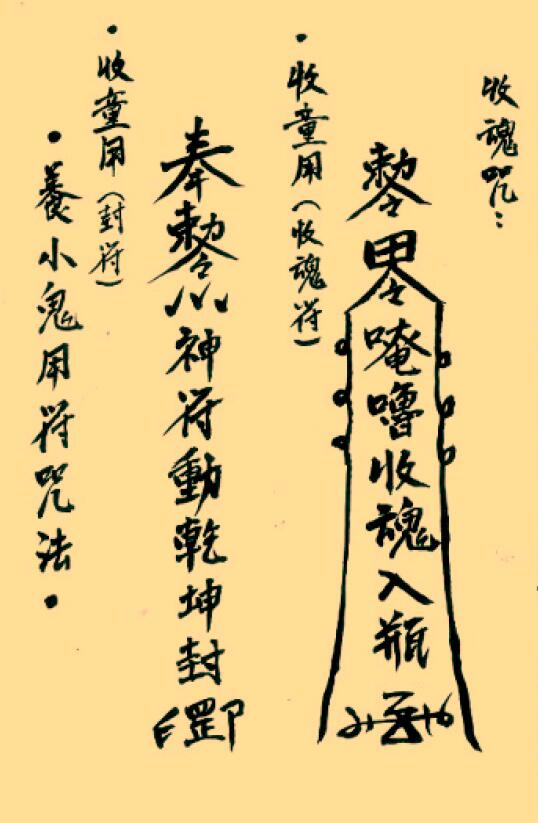 收魂咒：
唵嚕收魂入瓶
•收童用（收魂符）
奉勅
神符動乾坤封
•收童用（封符）
•養小鬼用符咒法•